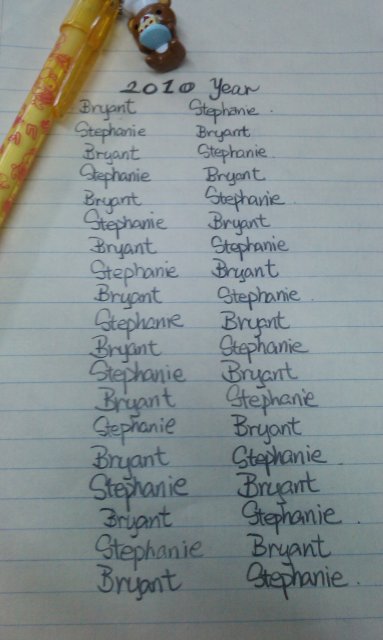 2010 Year
Bryant Stephanie.
Stephanie Bryant
Bryant Stephanie.
Stephanie Bryant
Bryant Stephanie.
Stephanie Bryant
Bryant Stephanie
Stephanie Bryant
Bryant Stephanie.
Stephanie Bryant
Bryant Stephanie
Stephanie Bryant
Bryant Stephanie
Stephanie Bryant
Bryant Stephanie.
Stephanie Bryant
Bryant Stephanie.
Stephanie Bryant
Bryant Stephanie.